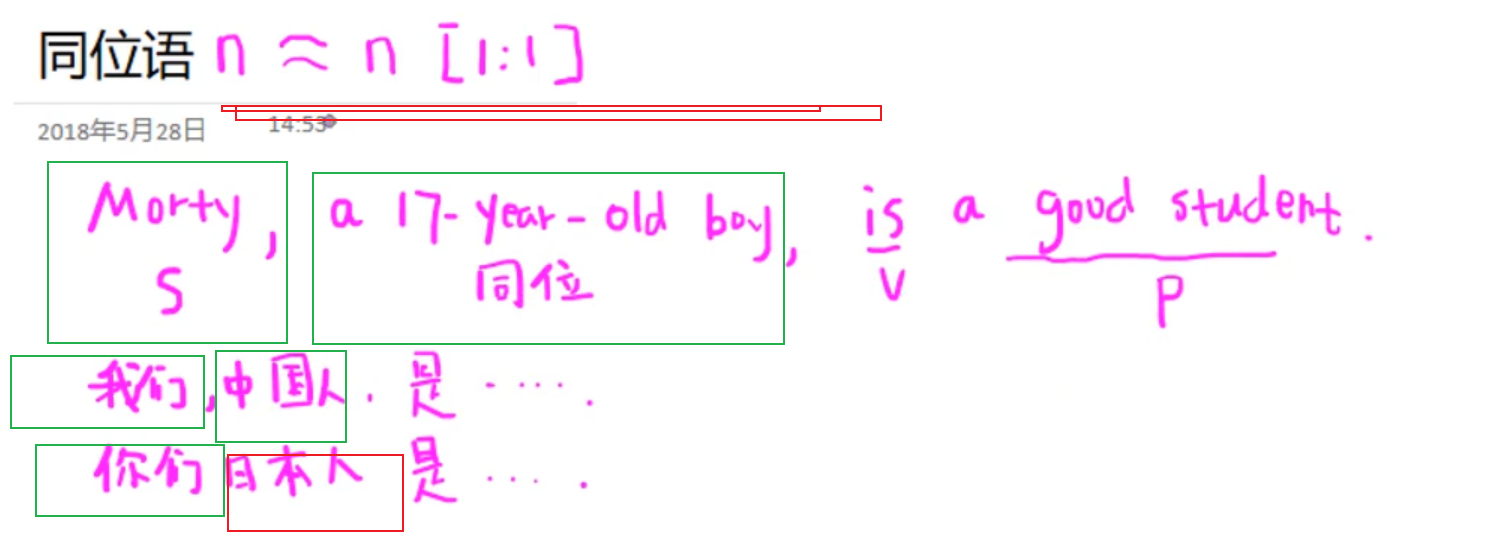 同位语 n ≈ n [1:1]
2018年5月28日 14:53
Morty, a 17-year-old boy, is a good student.
S 同位 V P
我们,中国人.是.....
你们日本人是....